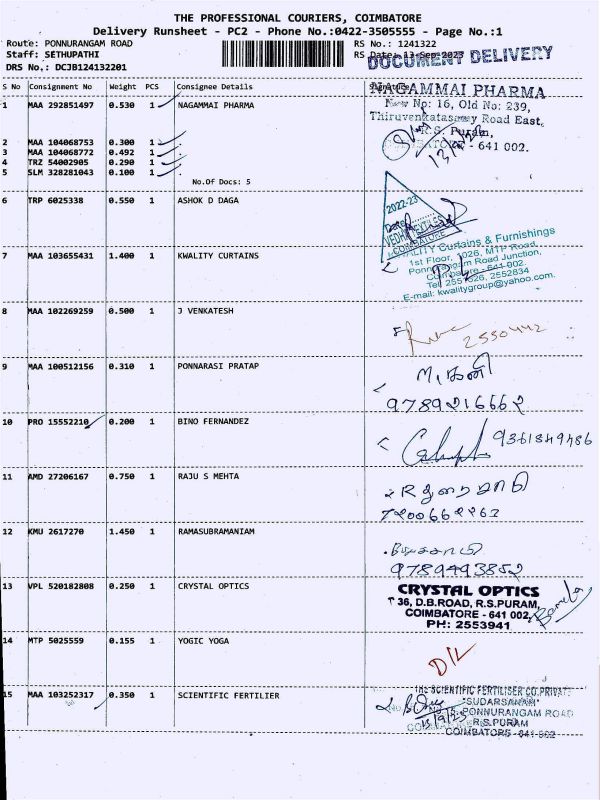 THE PROFESSIONAL COURIERS, COIMBATORE
Delivery Runsheet - PC2 - Phone No.:0422-3505555 - Page No.:1
Route: PONNURANGAM ROAD
RS No.: 1241322
Staff: SETHUPATHI
RS Date: 13-Sep-2023
DOCUMENT DELIVERY
DRS No.: DCJB124132201
S No Consignment No Weight PCS Consignee Details Signature
1 MAA 292851497 0.530 1 NAGAMMAI PHARMA
NAGAMMAI PHARMA
New No: 16, Old No: 239,
Thiruvenkatasamy Road East,
R.S. Puram,
COIMBATORE - 641 002.
2 MAA 104068753 0.300 1
3 MAA 104068772 0.492 1
4 TRZ 54002905 0.290 1
5 SLM 328281043 0.100 1
No.Of Docs: 5
6 TRP 6025338 0.550 1 ASHOK D DAGA
2022-23
COIMBATORE
7 MAA 103655431 1.400 1 KWALITY CURTAINS
KWALITY Curtains & Furnishings
1st Floor, 1026, MTP Road,
Ponnurangam Road Junction,
Coimbatore - 641 002.
Tel: 2551526, 2552834
E-mail: kwalitygroup@yahoo.com.
8 MAA 102269259 0.500 1 J VENKATESH
2550442
9 MAA 100512156 0.310 1 PONNARASI PRATAP
9789216662
10 PRO 15552210 0.200 1 BINO FERNANDEZ
9361849486
11 AMD 27206167 0.750 1 RAJU S MEHTA
12 KMU 2617270 1.450 1 RAMASUBRAMANIAM
9789493852
13 VPL 520182808 0.250 1 CRYSTAL OPTICS
CRYSTAL OPTICS
36, D.B.ROAD, R.S.PURAM,
COIMBATORE - 641 002.
PH: 2553941
14 MTP 5025559 0.155 1 YOGIC YOGA
D/L
15 MAA 103252317 0.350 1 SCIENTIFIC FERTILIER
THE SCIENTIFIC FERTILISER CO.PRIVATE
"SUDARSANAM"
PONNURANGAM ROAD
R.S.PURAM
13/9/23
COIMBATORE - 641 002